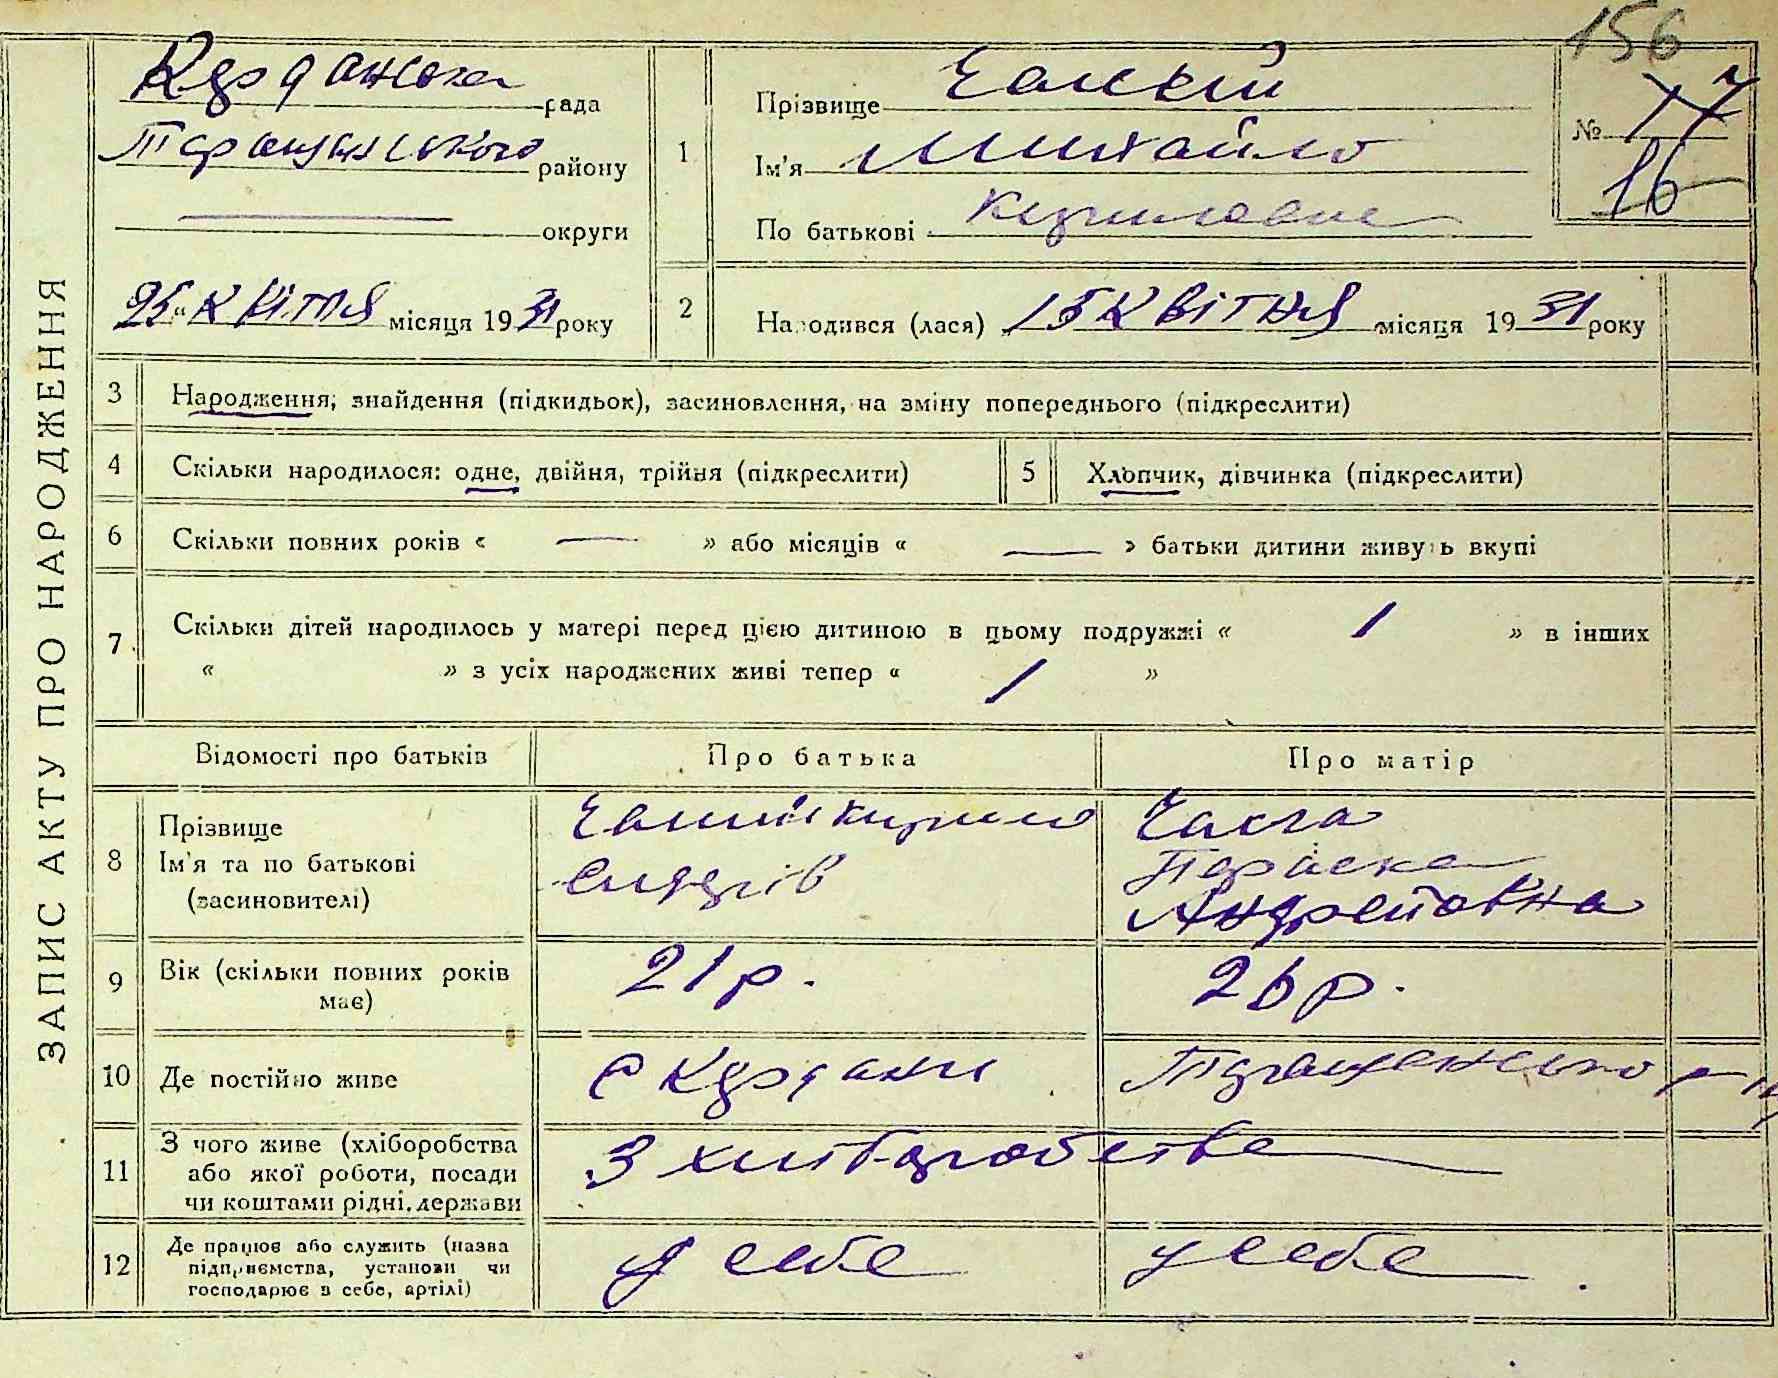 156
Курданська рада
Таращанського району
округи
25 „ Квітня місяця 1931 року
1
Прізвище
Ім'я Михайло
По батькові
№ 17
16
2
Народився (лася) 15 Квітня місяця 1931 року
ЗАПИС АКТУ ПРО НАРОДЖЕННЯ
3 Народження; знайдення (підкидьок), засиновлення, на зміну попереднього (підкреслити)
4 Скільки народилося: одне, двійня, трійня (підкреслити)
5 Хлопчик, дівчинка (підкреслити)
6 Скільки повних років « — » або місяців « — » батьки дитини живуть вкупі
7 Скільки дітей народилось у матері перед цією дитиною в цьому подружжі « 1 » в інших
« » з усіх народжених живі тепер « 1 »
Відомості про батьків
Про батька
Про матір
8
Прізвище
Ім'я та по батькові
(засиновителі)
Кирило
Параска
Андреївна
9
Вік (скільки повних років
має)
21 р.
26 р.
10 Де постійно живе
с Курдани
Таращанського р-ну
11
З чого живе (хліборобства
або якої роботи, посади
чи коштами рідні, держави
З хліборобства
12
Де працює або служить (назва
підприємства, установи чи
господарює в себе, артілі)
у себе
у себе